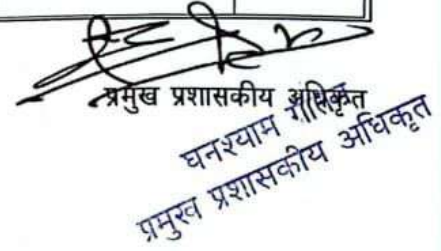 प्रमुख प्रशासकीय अधिकृत
घनश्याम
प्रमुख प्रशासकीय अधिकृत